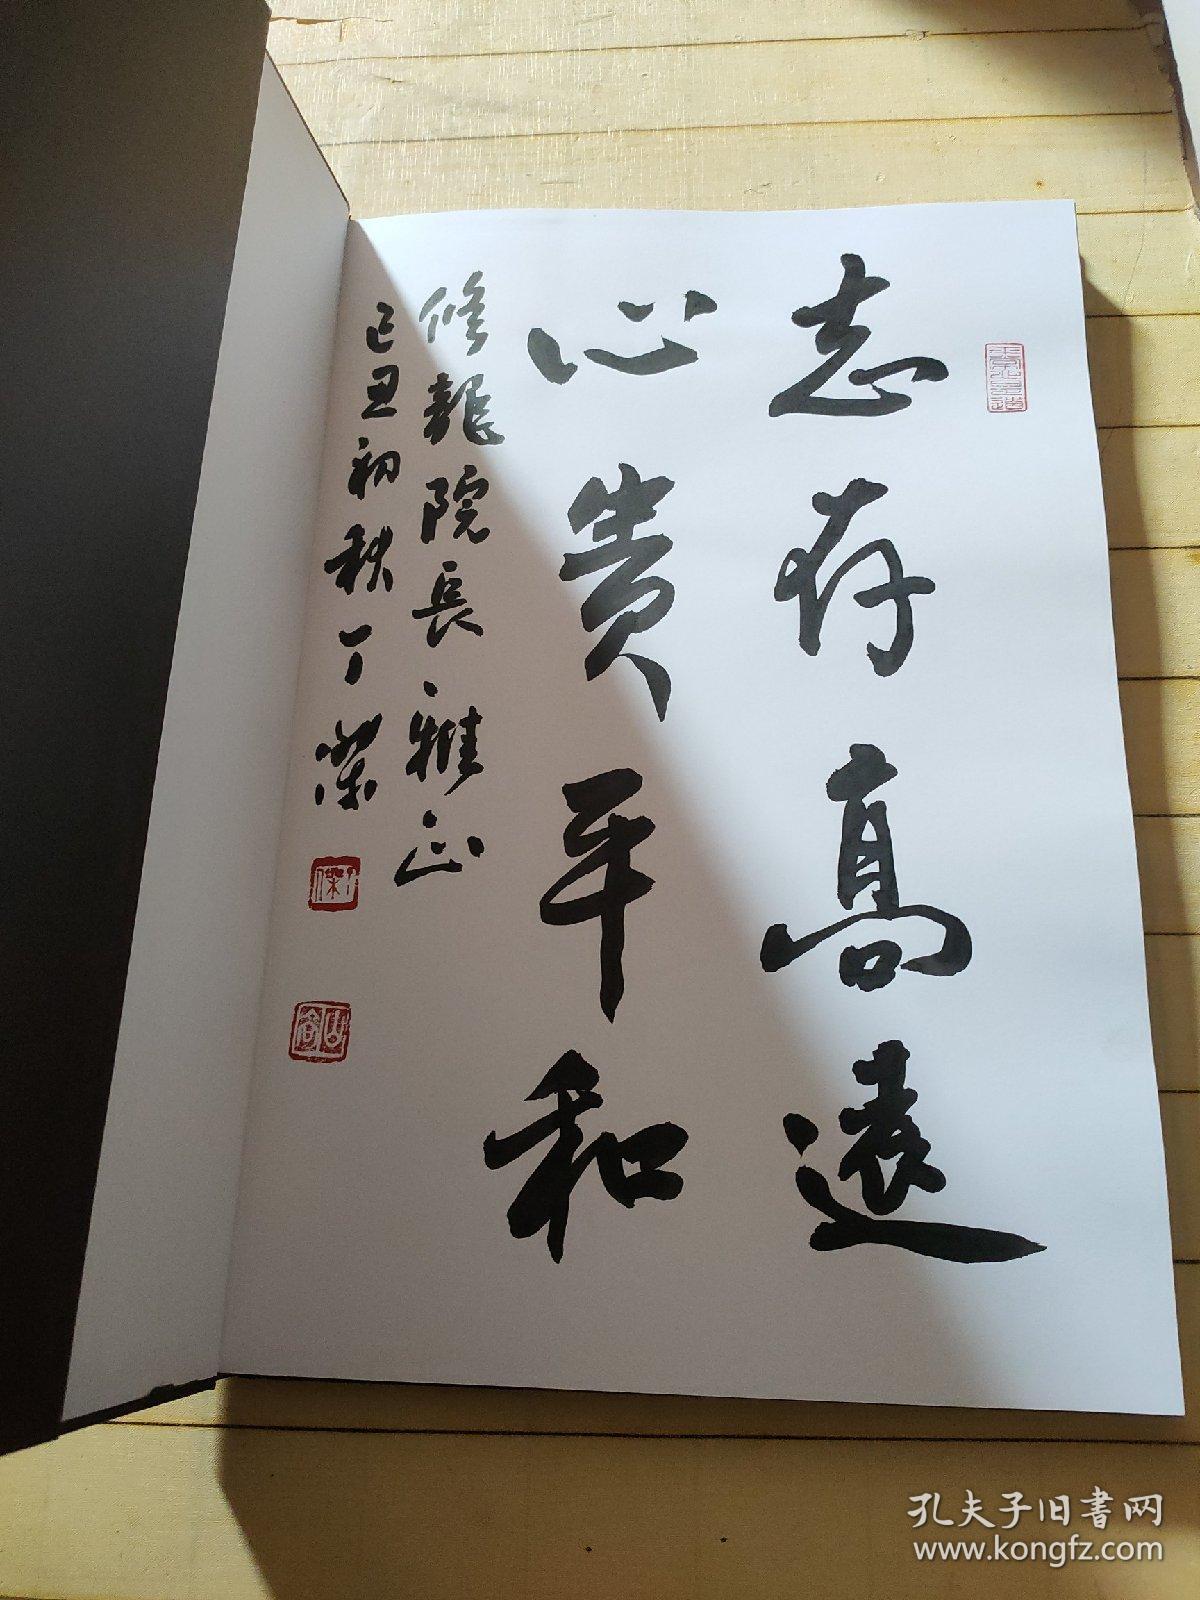 志存高遠
心贵平和
修龍院長雅正
己丑初秋丁
孔夫子旧书网
www.kongfz.com